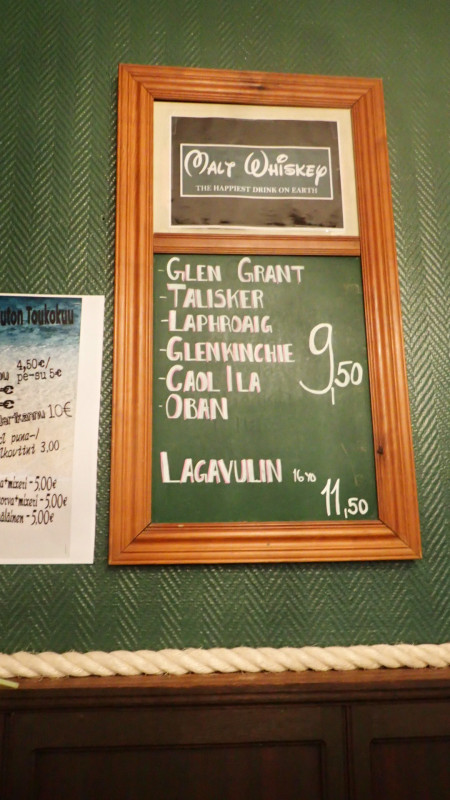 MALT WHISKEY
THE HAPPIEST DRINK ON EARTH
-GLEN GRANT
-TALISKER
-LAPHROAIG
-GLENKINCHIE
-CAOL ILA
-OBAN
9,50
LAGAVULIN 16 YO
11,50
Toukokuu
4,50€/
pe-su 5€
€
€
10€
puna-/
3,00
+mixeri - 5,00€
+mixeri - 5,00€
- 5,00€